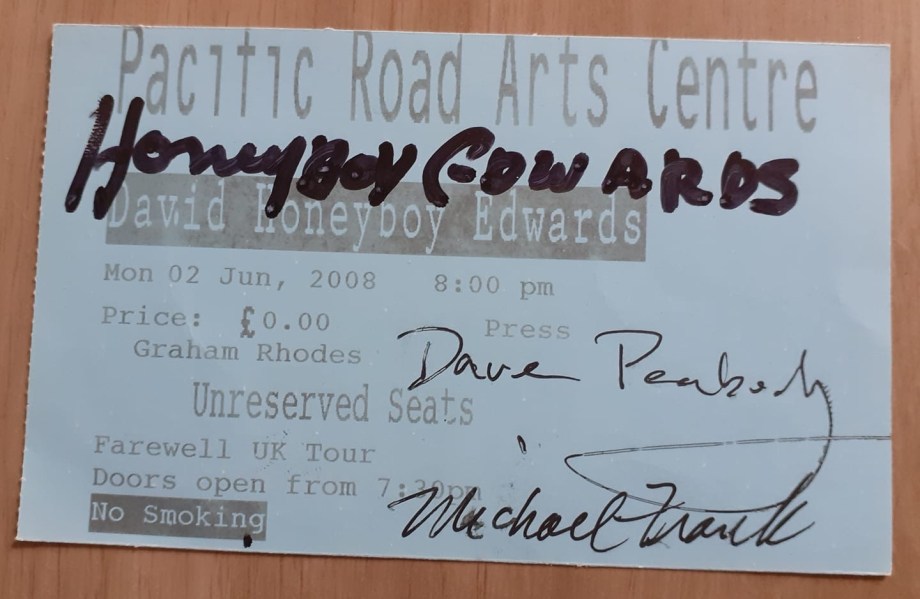 Pacific Road Arts Centre
HoneyBoy EDWARDS
David Honeyboy Edwards
Mon 02 Jun, 2008 8:00 pm
Price: £0.00 Press
Graham Rhodes
Dave Peabody
Unreserved Seats
Farewell UK Tour
Doors open from 7:30pm
Michael Frank
No Smoking